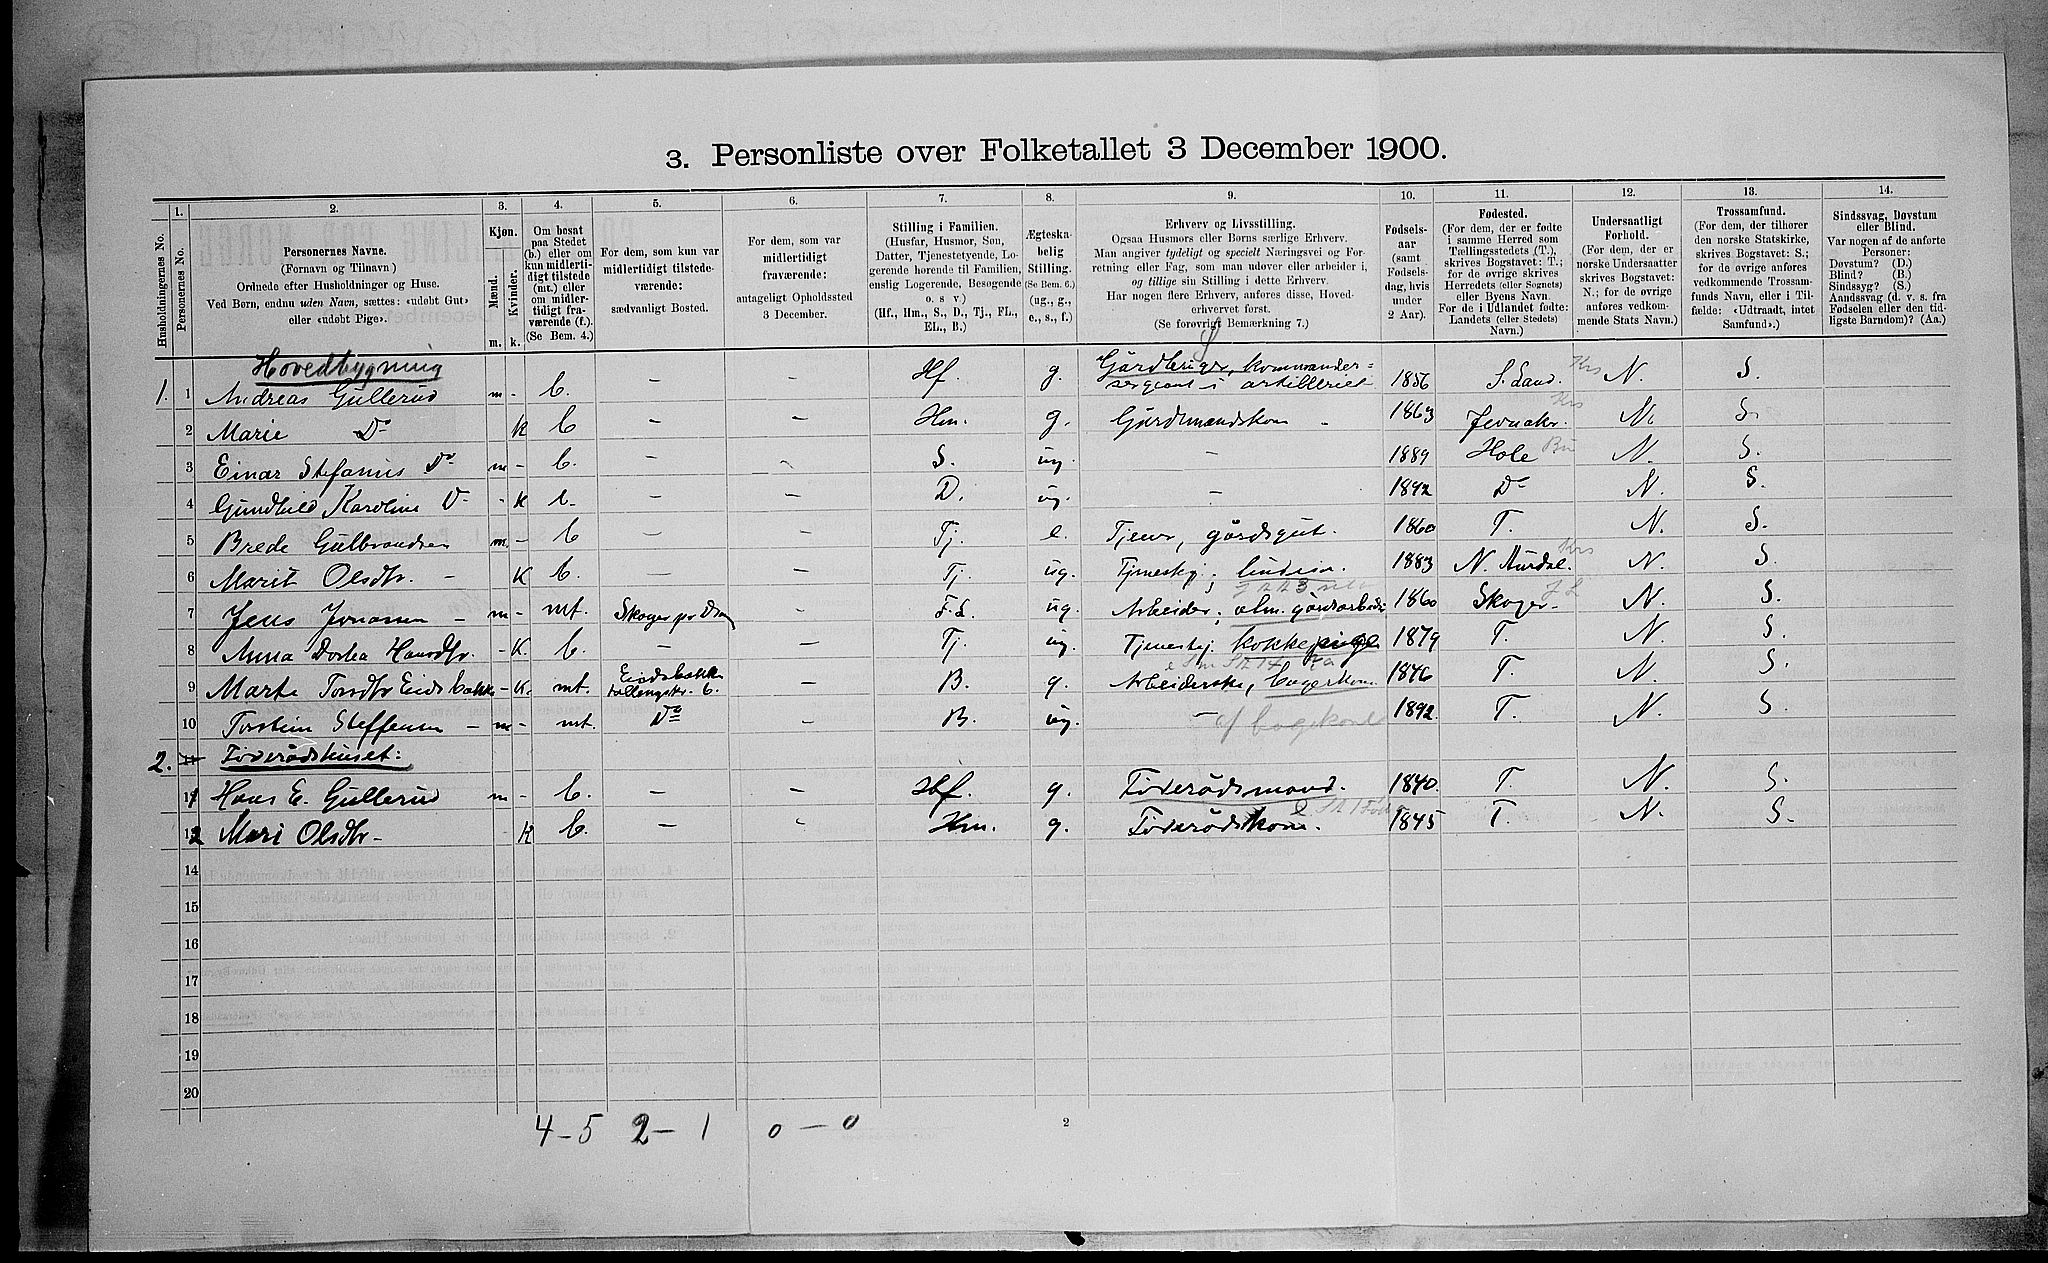 3. Personliste over Folketallet 3 December 1900.
1. 2. 3. 4. 5. 6. 7. 8. 9. 10. 11. 12. 13. 14.
Husholdningernes No.
Personernes No.
Personernes Navne.
(Fornavn og Tilnavn)
Ordnede efter Husholdninger og Huse.
Ved Børn, endnu uden Navn, sættes: «udøbt Gut»
eller «udøbt Pige».
Kjøn.
Mænd.
Kvinder.
m. k.
Om bosat
paa Stedet
(b.) eller om
kun midlerti-
digt tilstede
(mt.) eller
om midler-
tidigt fra-
værende (f.).
(Se Bem. 4.)
For dem, som kun var
midlertidigt tilstede-
værende:
sædvanligt Bosted.
For dem, som var
midlertidigt
fraværende:
antageligt Opholdssted
3 December.
Stilling i Familien.
(Husfar, Husmor, Søn,
Datter, Tjenestetyende, Lo-
gerende hørende til Familien,
enslig Logerende, Besøgende
o. s. v.)
(Hf., Hm., S., D., Tj., FL.,
EL., B.)
Ægteska-
belig
Stilling.
(Se Bem. 6.)
(ug., g.,
e., s., f.)
Erhverv og Livsstilling.
Ogsaa Husmors eller Børns særlige Erhverv.
Man angiver tydeligt og specielt Næringsvei og For-
retning eller Fag, som man udøver eller arbeider i,
og tillige sin Stilling i dette Erhverv.
Har nogen flere Erhverv, anføres disse, Hoved-
erhvervet først.
(Se forøvrigt Bemærkning 7.)
Fødsels-
aar
(samt
Fødsels-
dag, hvis
under
2 Aar).
Fødested.
(For dem, der er fødte
i samme Herred som
Tællingsstedets (T.),
skrives Bogstavet: T.;
for de øvrige skrives
Herredets (eller Sognets)
eller Byens Navn.
For de i Udlandet fødte:
Landets (eller Stedets)
Navn.)
Undersaatligt
Forhold.
(For dem, der er
norske Undersaatter
skrives Bogstavet:
N.; for de øvrige
anføres vedkom-
mende Stats Navn.)
Trossamfund.
(For dem, der tilhører
den norske Statskirke,
skrives Bogstavet: S.;
for de øvrige anføres
vedkommende Trossam-
funds Navn, eller i Til-
fælde: «Udtraadt, intet
Samfund».)
Sindssvag, Døvstum
eller Blind.
Var nogen af de anførte
Personer:
Døvstum? (D.)
Blind? (B.)
Sindssyg? (S.)
Aandssvag (d. v. s. fra
Fødselen eller den tid-
ligste Barndom)? (Aa.)
Hovedbygning
1. 1 Andreas Gullerud m - b. - - Hf. g. Gårdbruger, kommander=sergeant i artilleriet 1856 S. Land. Krs N. S.
2 Marie Do k b - - Hm. g. Gårdmandskone 1863 Jevnaker. Krs N. S.
3 Einar Stefanus Do m - b. - - S. ug. - 1889 Hole Bu N. S.
4 Gundhild Karoline Do - k b. - - D. ug. - 1892 Do N. S.
5 Brede Gulbrandsen m. - b - - Tj. e. Tjener, gårdsgut. 1860 T. N. S.
6 Marit Olsdtr. - K b. - - Tj. ug. Tjenestepj; budeie. 1883 N. Aurdal. Krs N. S.
7 Jens Jonassen - m - mt. Skoger pr Dram - F.L. ug. Arbeider; alm. gårdsarbeide 1860 Skoger JL N. S.
8 Anna Dorthea Hansdtr. - K. b. - - Tj. ug. Tjenestepj. kokkepige 1879 T. N. S.
9 Marte Torsdtr Eidsbakke - K. mt. Eidsbakke - B. g. Arbeiderske, bagerkone 1846 T. N. S.
10 Torstein Steffensen - m - mt. Do - B. ug. - 1892. T. N. S.
2. 11 Føderådshuset:
1 Hans E. Gullerud m - b. - - Hf. g. Føderådsmand. 1840. T. N. S.
2 Mari Olsdtr - K b. - - Hm. g. Føderådskone. 1845 T. N. S.
14
15
16
17
18
19
20
4 - 5 2 - 1 0 - 0
2